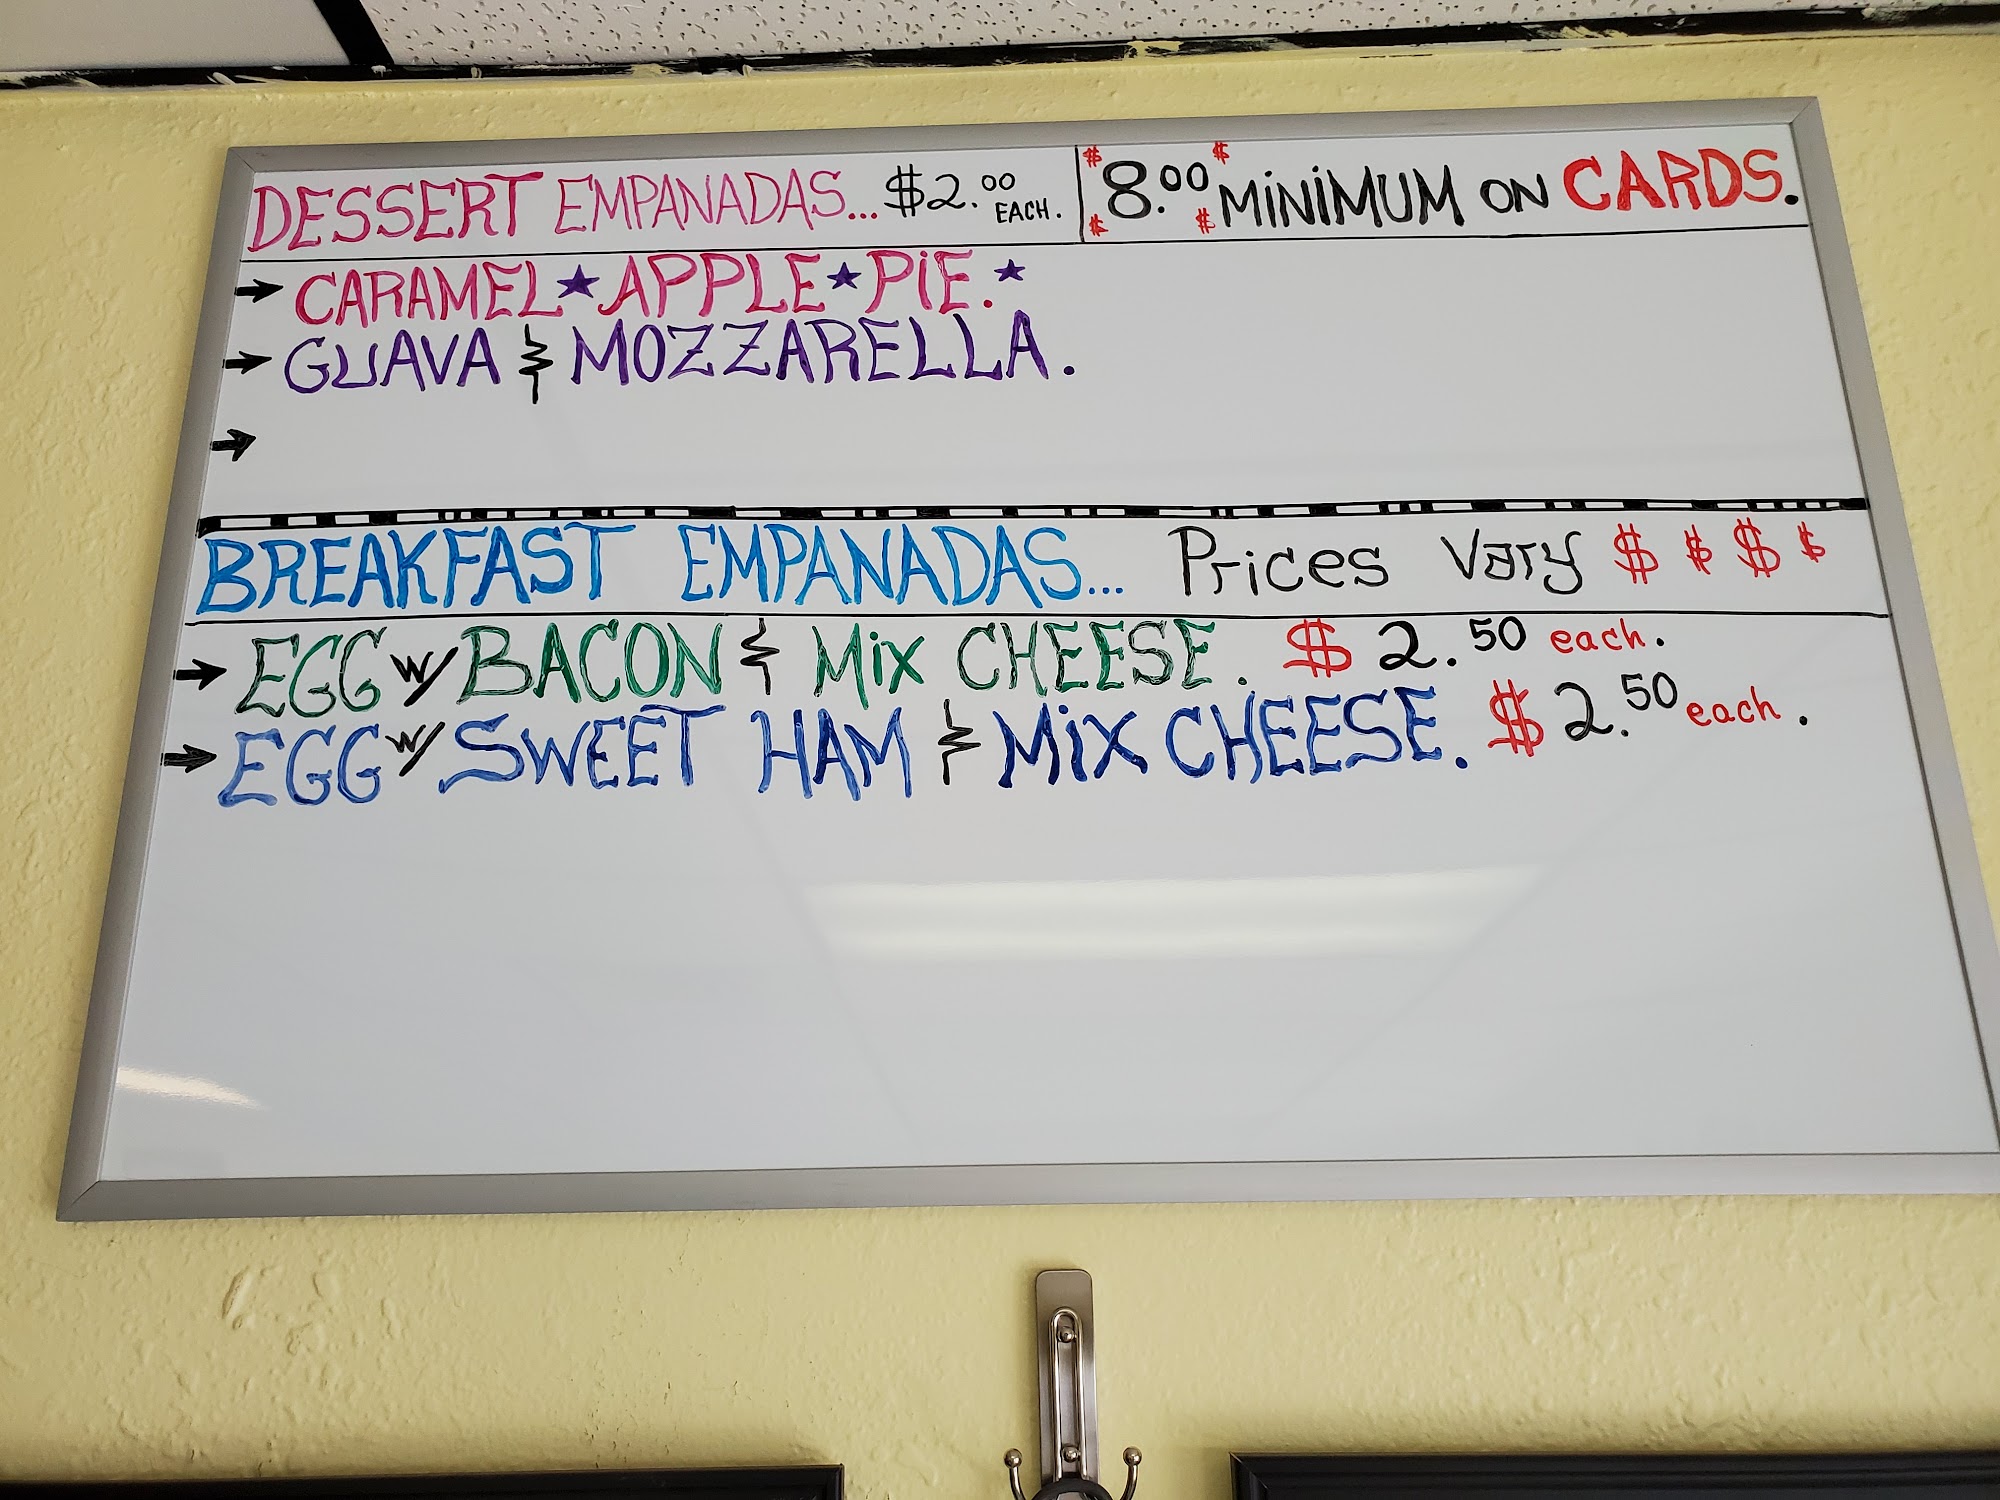 DESSERT EMPANADAS... $2.00 EACH.
$8.00 MINIMUM ON CARDS.
→ CARAMEL★APPLE★PIE.★
→ GUAVA & MOZZARELLA.
→
BREAKFAST EMPANADAS... Prices Vary $ $ $ $
→ EGG w/ BACON & Mix CHEESE. $2.50 each.
→ EGG w/ SWEET HAM & Mix CHEESE. $2.50 each.